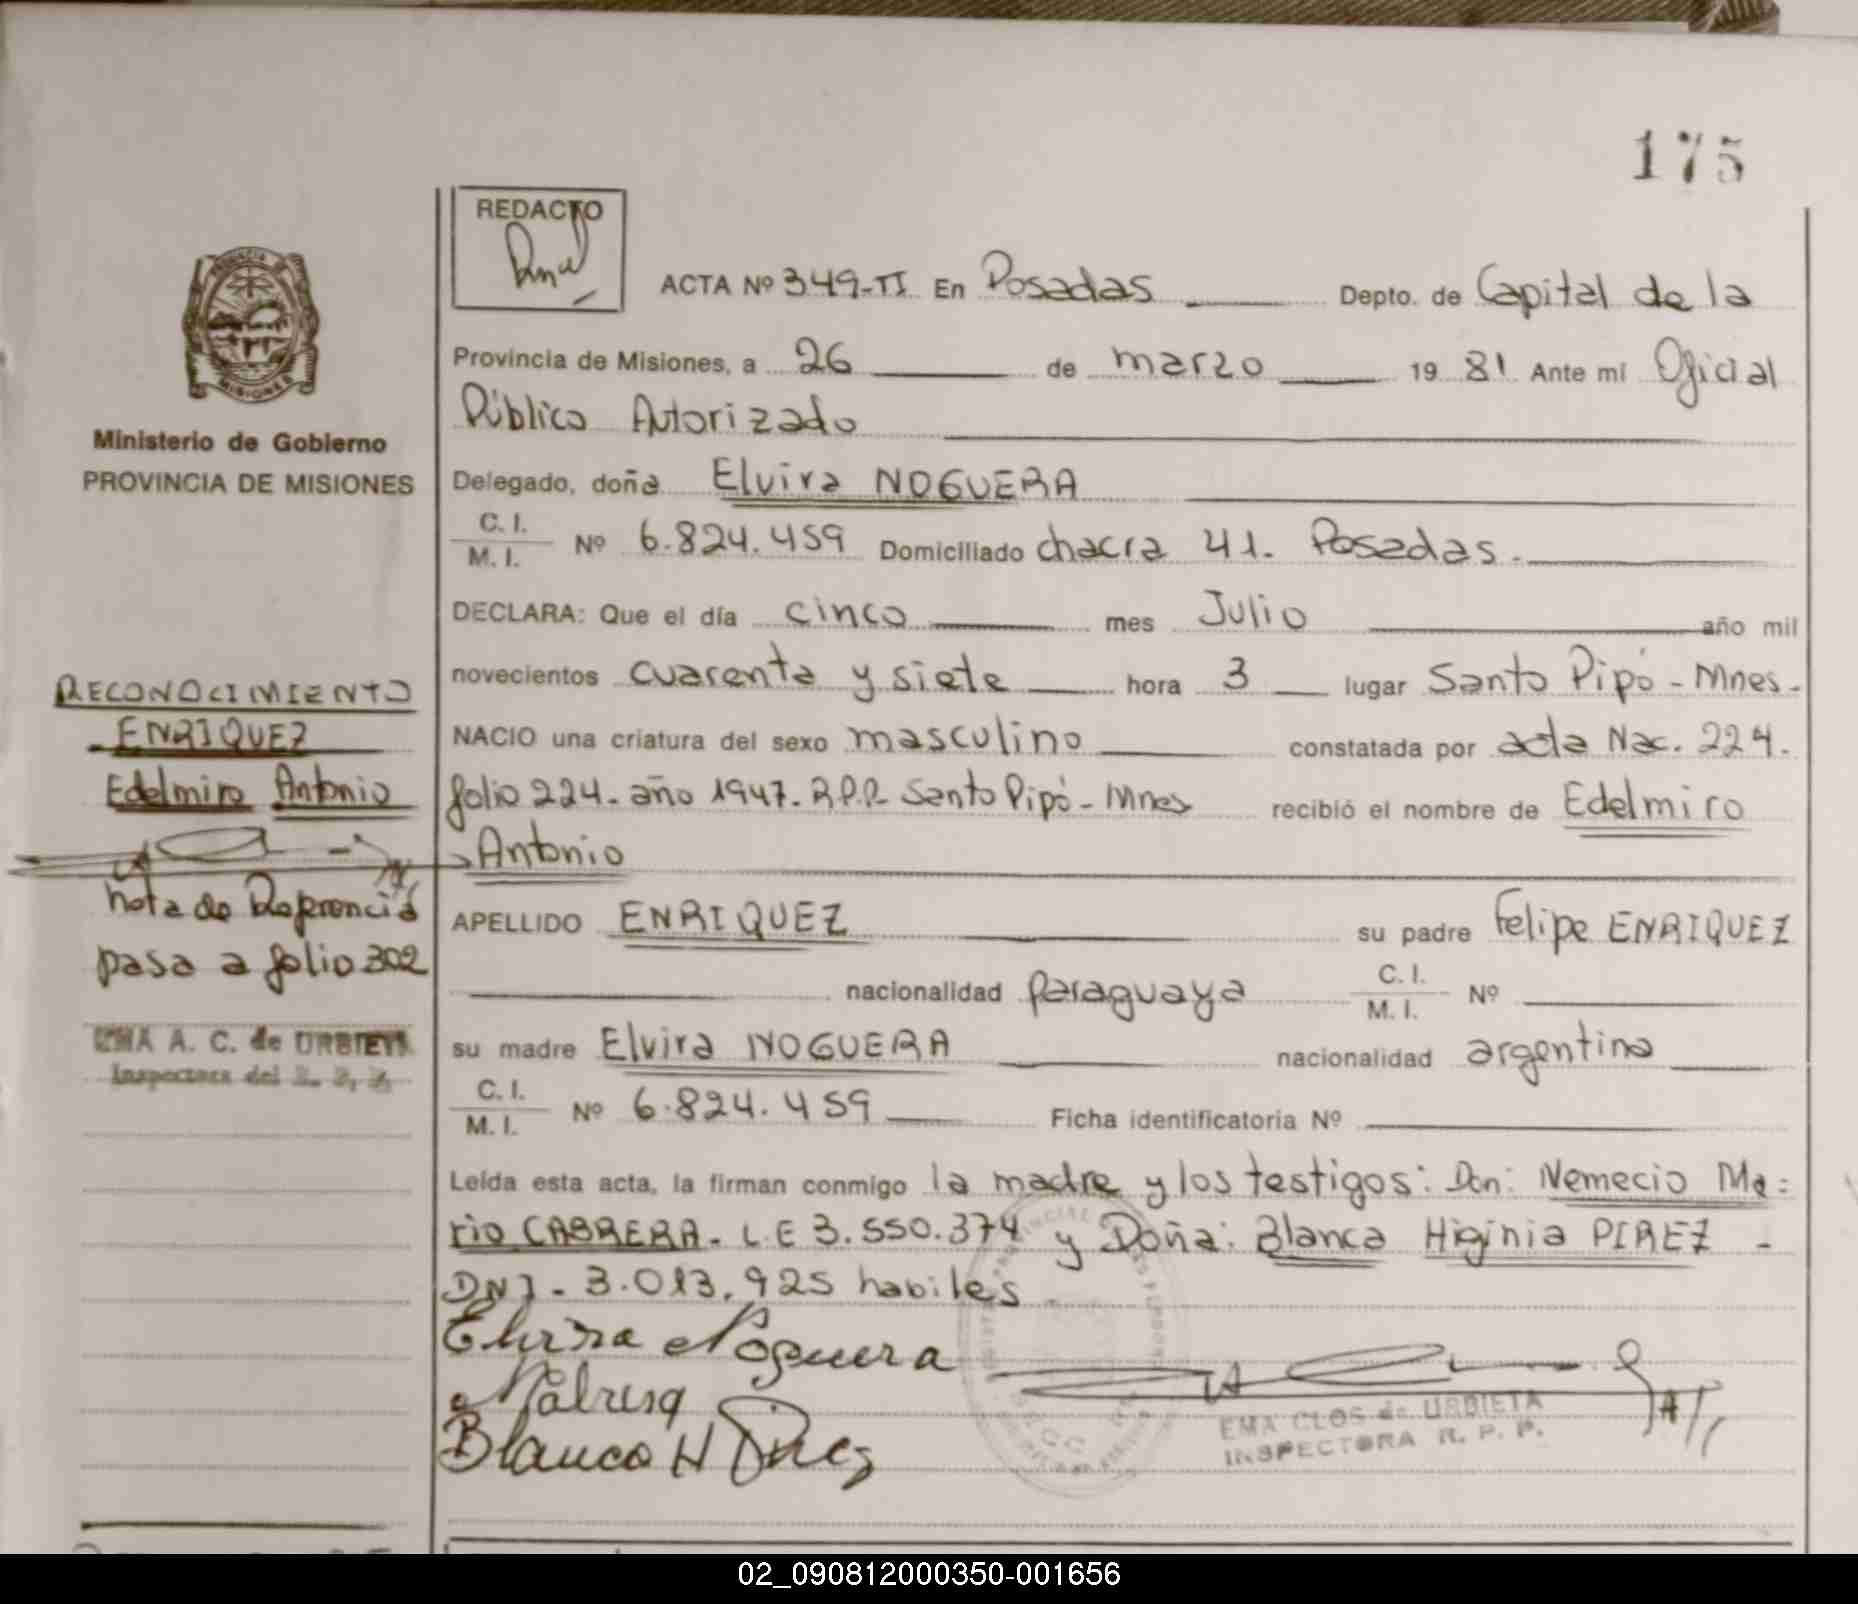 175
REDACTO
ACTA Nº 349-II En Posadas Depto. de Capital de la
Provincia de Misiones, a 26 de marzo 19 81 Ante mi Oficial
Público Autorizado
Delegado, doña Elvira NOGUERA
C. I.
M. I. Nº 6.824.459 Domiciliado chacra 41. Posadas.
DECLARA: Que el día cinco mes Julio año mil
novecientos cuarenta y siete hora 3 lugar Santo Pipó - Mnes-
NACIO una criatura del sexo masculino constatada por acta Nac. 224.
folio 224. año 1947. R.P.P. Santo Pipó - Mnes recibió el nombre de Edelmiro
Antonio
APELLIDO ENRIQUEZ su padre Felipe ENRIQUEZ
nacionalidad Paraguaya C. I.
M. I. Nº
su madre Elvira NOGUERA nacionalidad argentina
C. I.
M. I. Nº 6.824.459 Ficha identificatoria Nº
Leída esta acta, la firman conmigo la madre y los testigos: Don: Nemecio Ma=
rio CABRERA. L.E 3.550.374 y Doña: Blanca Higinia PIREZ -
DNI - 3.013.925 habiles
Elvira Noguera
Blanca H Pirez
EMA CLOS de URBIETA
INSPECTORA R. P. P.
PROVINCIA DE
MISIONES
Ministerio de Gobierno
PROVINCIA DE MISIONES
RECONOCIMIENTO
ENRIQUEZ
Edelmiro Antonio
nota de Referencia
pasa a folio 302
EMA A. C. de URBIETA
Inspectora del R. P. P.
02_090812000350-001656